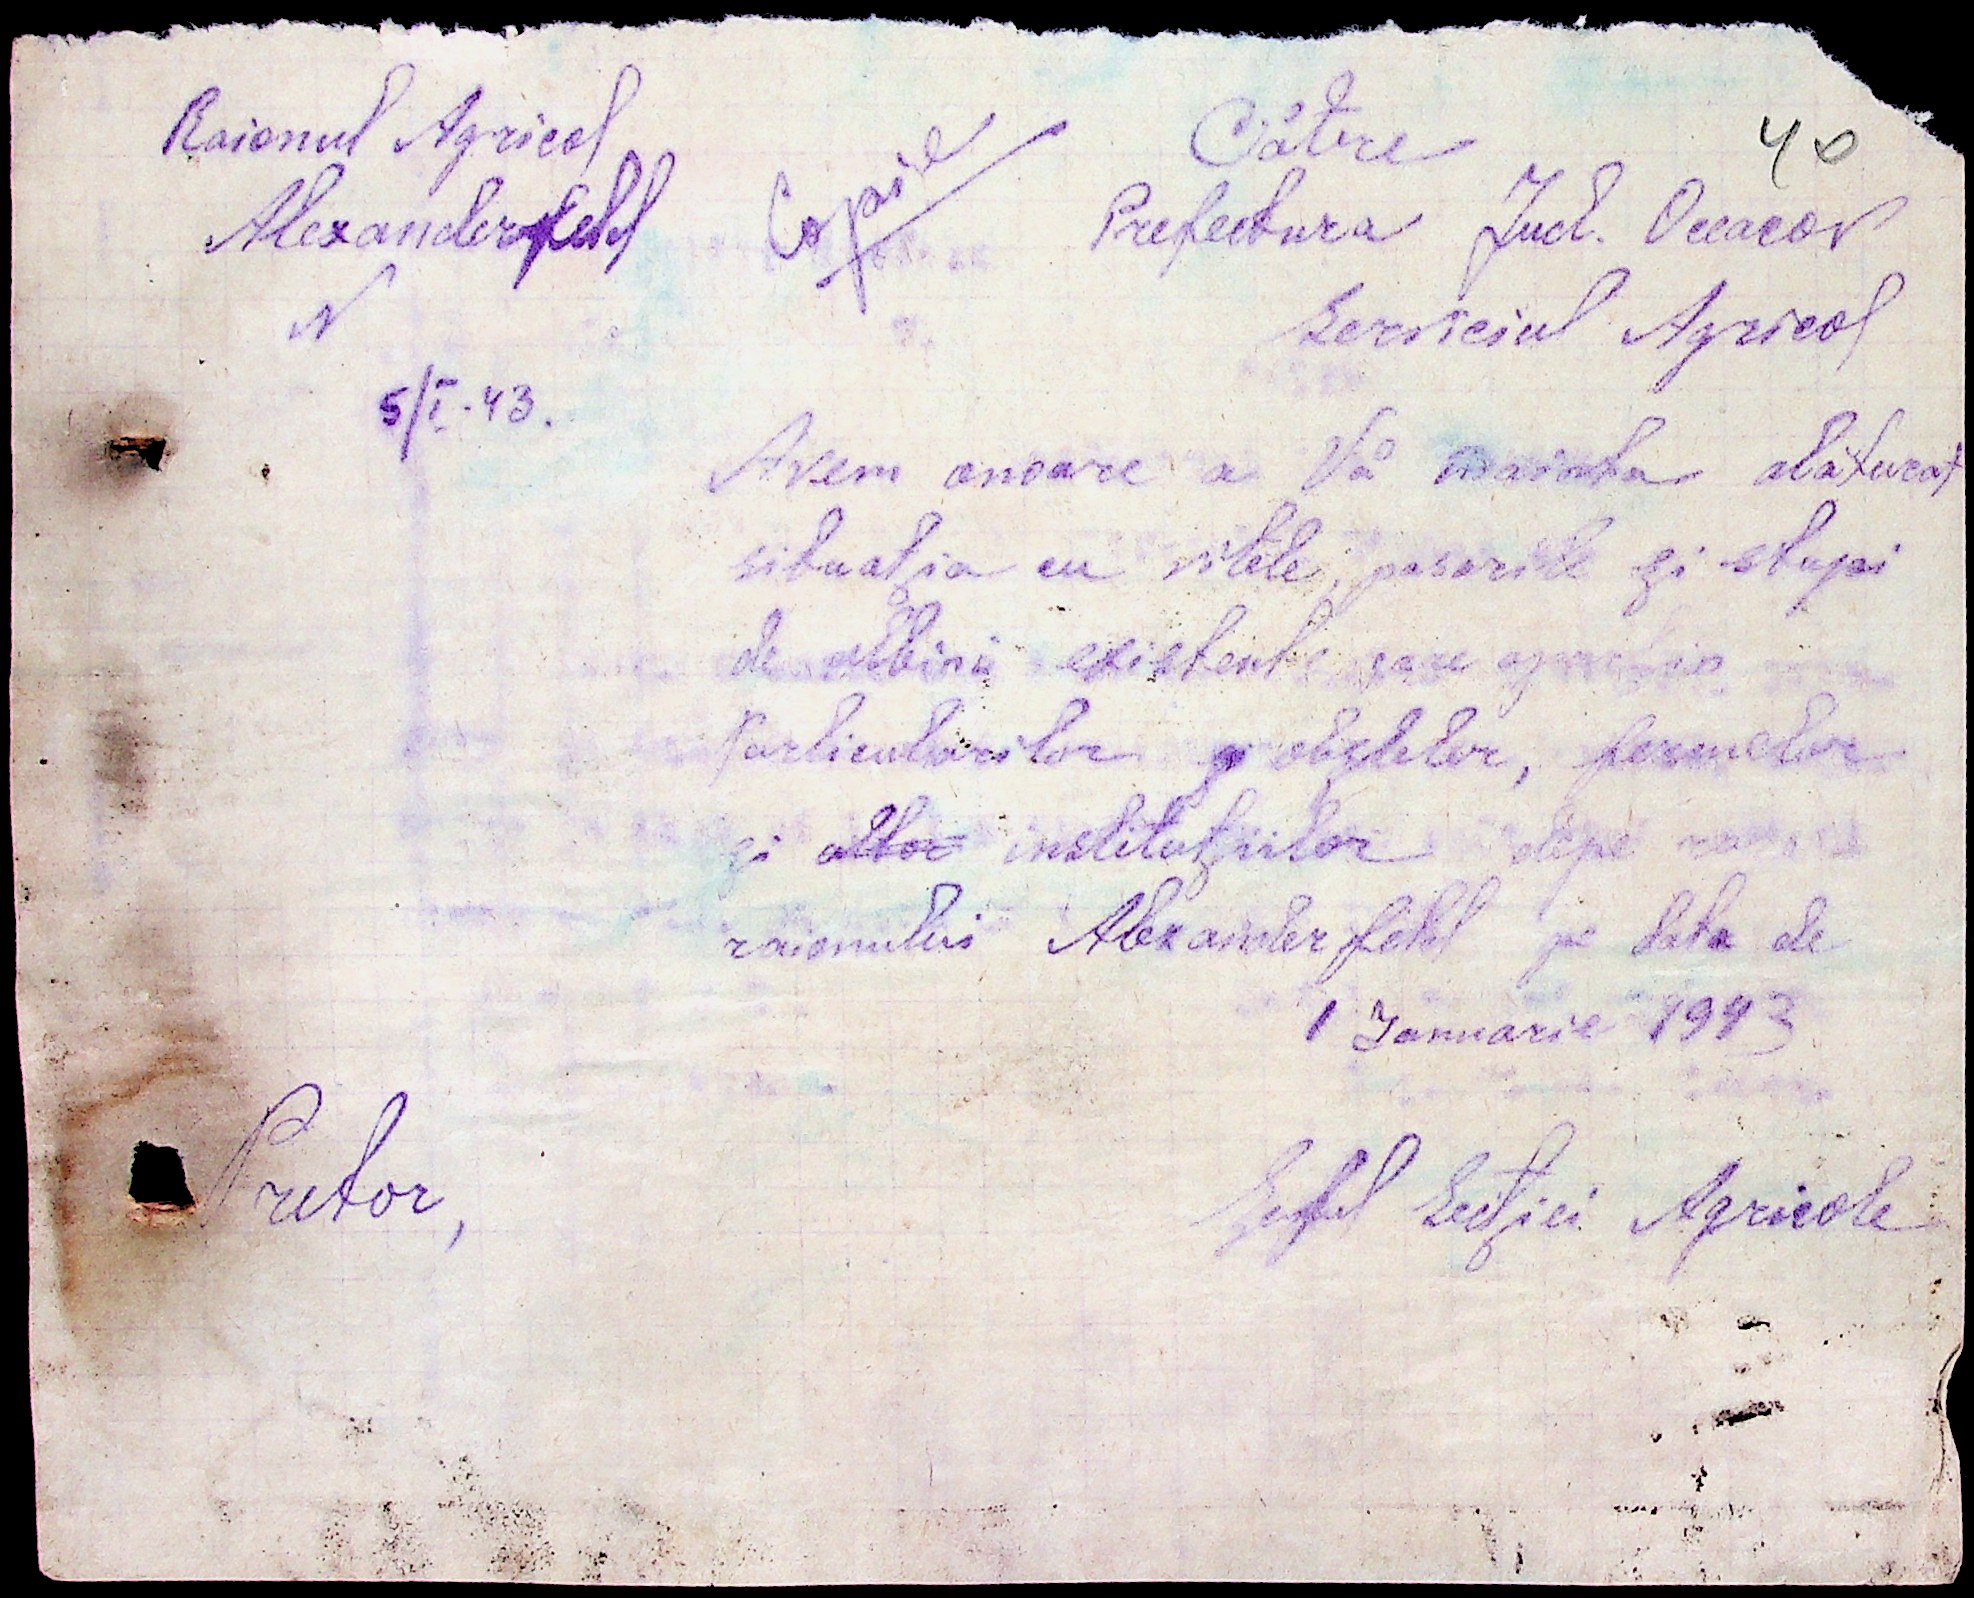 Raionul Agricol
Alexanderfeld
N
5/I.-43.
Copie
40
Către
Prefectura Jud. Oceacov
Serviciul Agricol
Avem onoare a Vă inainta alăturat
situatia cu vitele, pasarile și stupi
de albini existente care
Particularilor și obștelor, fermelor
și altor instituțiilor
raionului Alexanderfeld pe data de
1 Ianuarie 1943
Pretor,
Șeful Secției Agricole